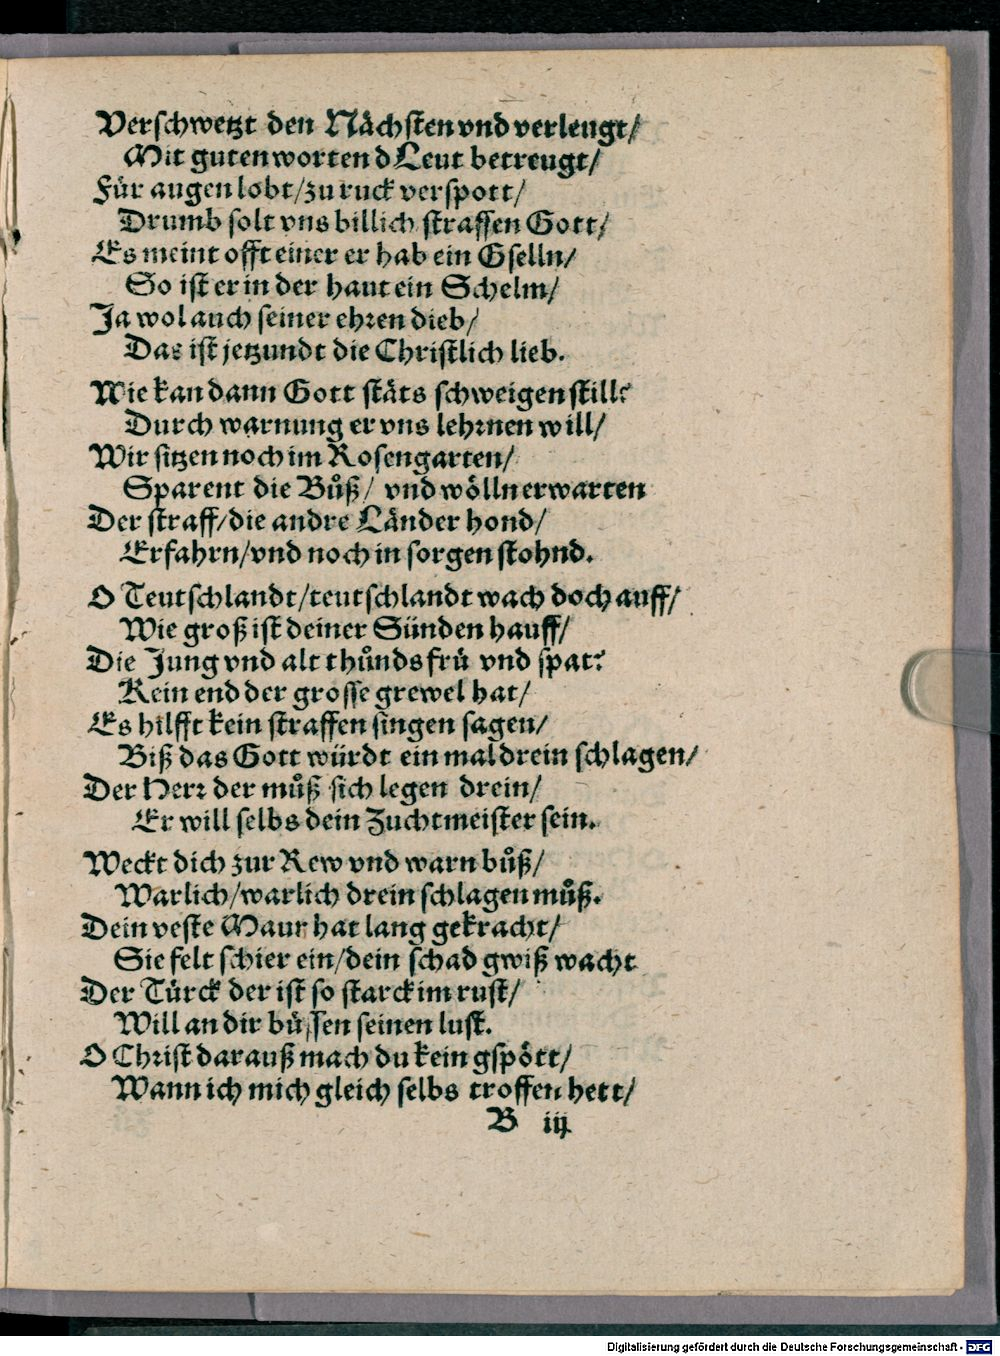 Verschwetzt den Nächsten vnd verleugt/
Mit guten worten d Leut betreugt/
Für augen lobt/zu ruck verspott/
Drumb solt vns billich straffen Gott/
Es meint offt einer er hab ein Gselln/
So ist er in der haut ein Schelm/
Ja wol auch seiner ehren dieb/
Das ist jetzundt die Christlich lieb.
Wie kan dann Gott stäts schweigen still?
Durch warnung er vns lehrnen will/
Wir sitzen noch im Rosengarten/
Sparent die Bůß/ vnd wölln erwarten
Der straff/die andre Länder hond/
Erfahrn/vnd noch in sorgen stohnd.
O Teutschlandt/teutschlandt wach doch auff/
Wie groß ist deiner Sünden hauff/
Die Jung vnd alt thůnds frü vnd spat?
Kein end der grosse grewel hat/
Es hilfft kein straffen singen sagen/
Biß das Gott würdt ein mal drein schlagen/
Der Herr der můß sich legen drein/
Er will selbs dein Zuchtmeister sein.
Weckt dich zur Rew vnd warn bůß/
Warlich/warlich drein schlagen můß.
Dein veste Maur hat lang gekracht/
Sie felt schier ein/dein schad gwiß wacht
Der Türck der ist so starck im rust/
Will an dir büssen seinen lust.
O Christ darauß mach du kein gspött/
Wann ich mich gleich selbs troffen hett/
B iij
Digitalisierung gefördert durch die Deutsche Forschungsgemeinschaft - DFG